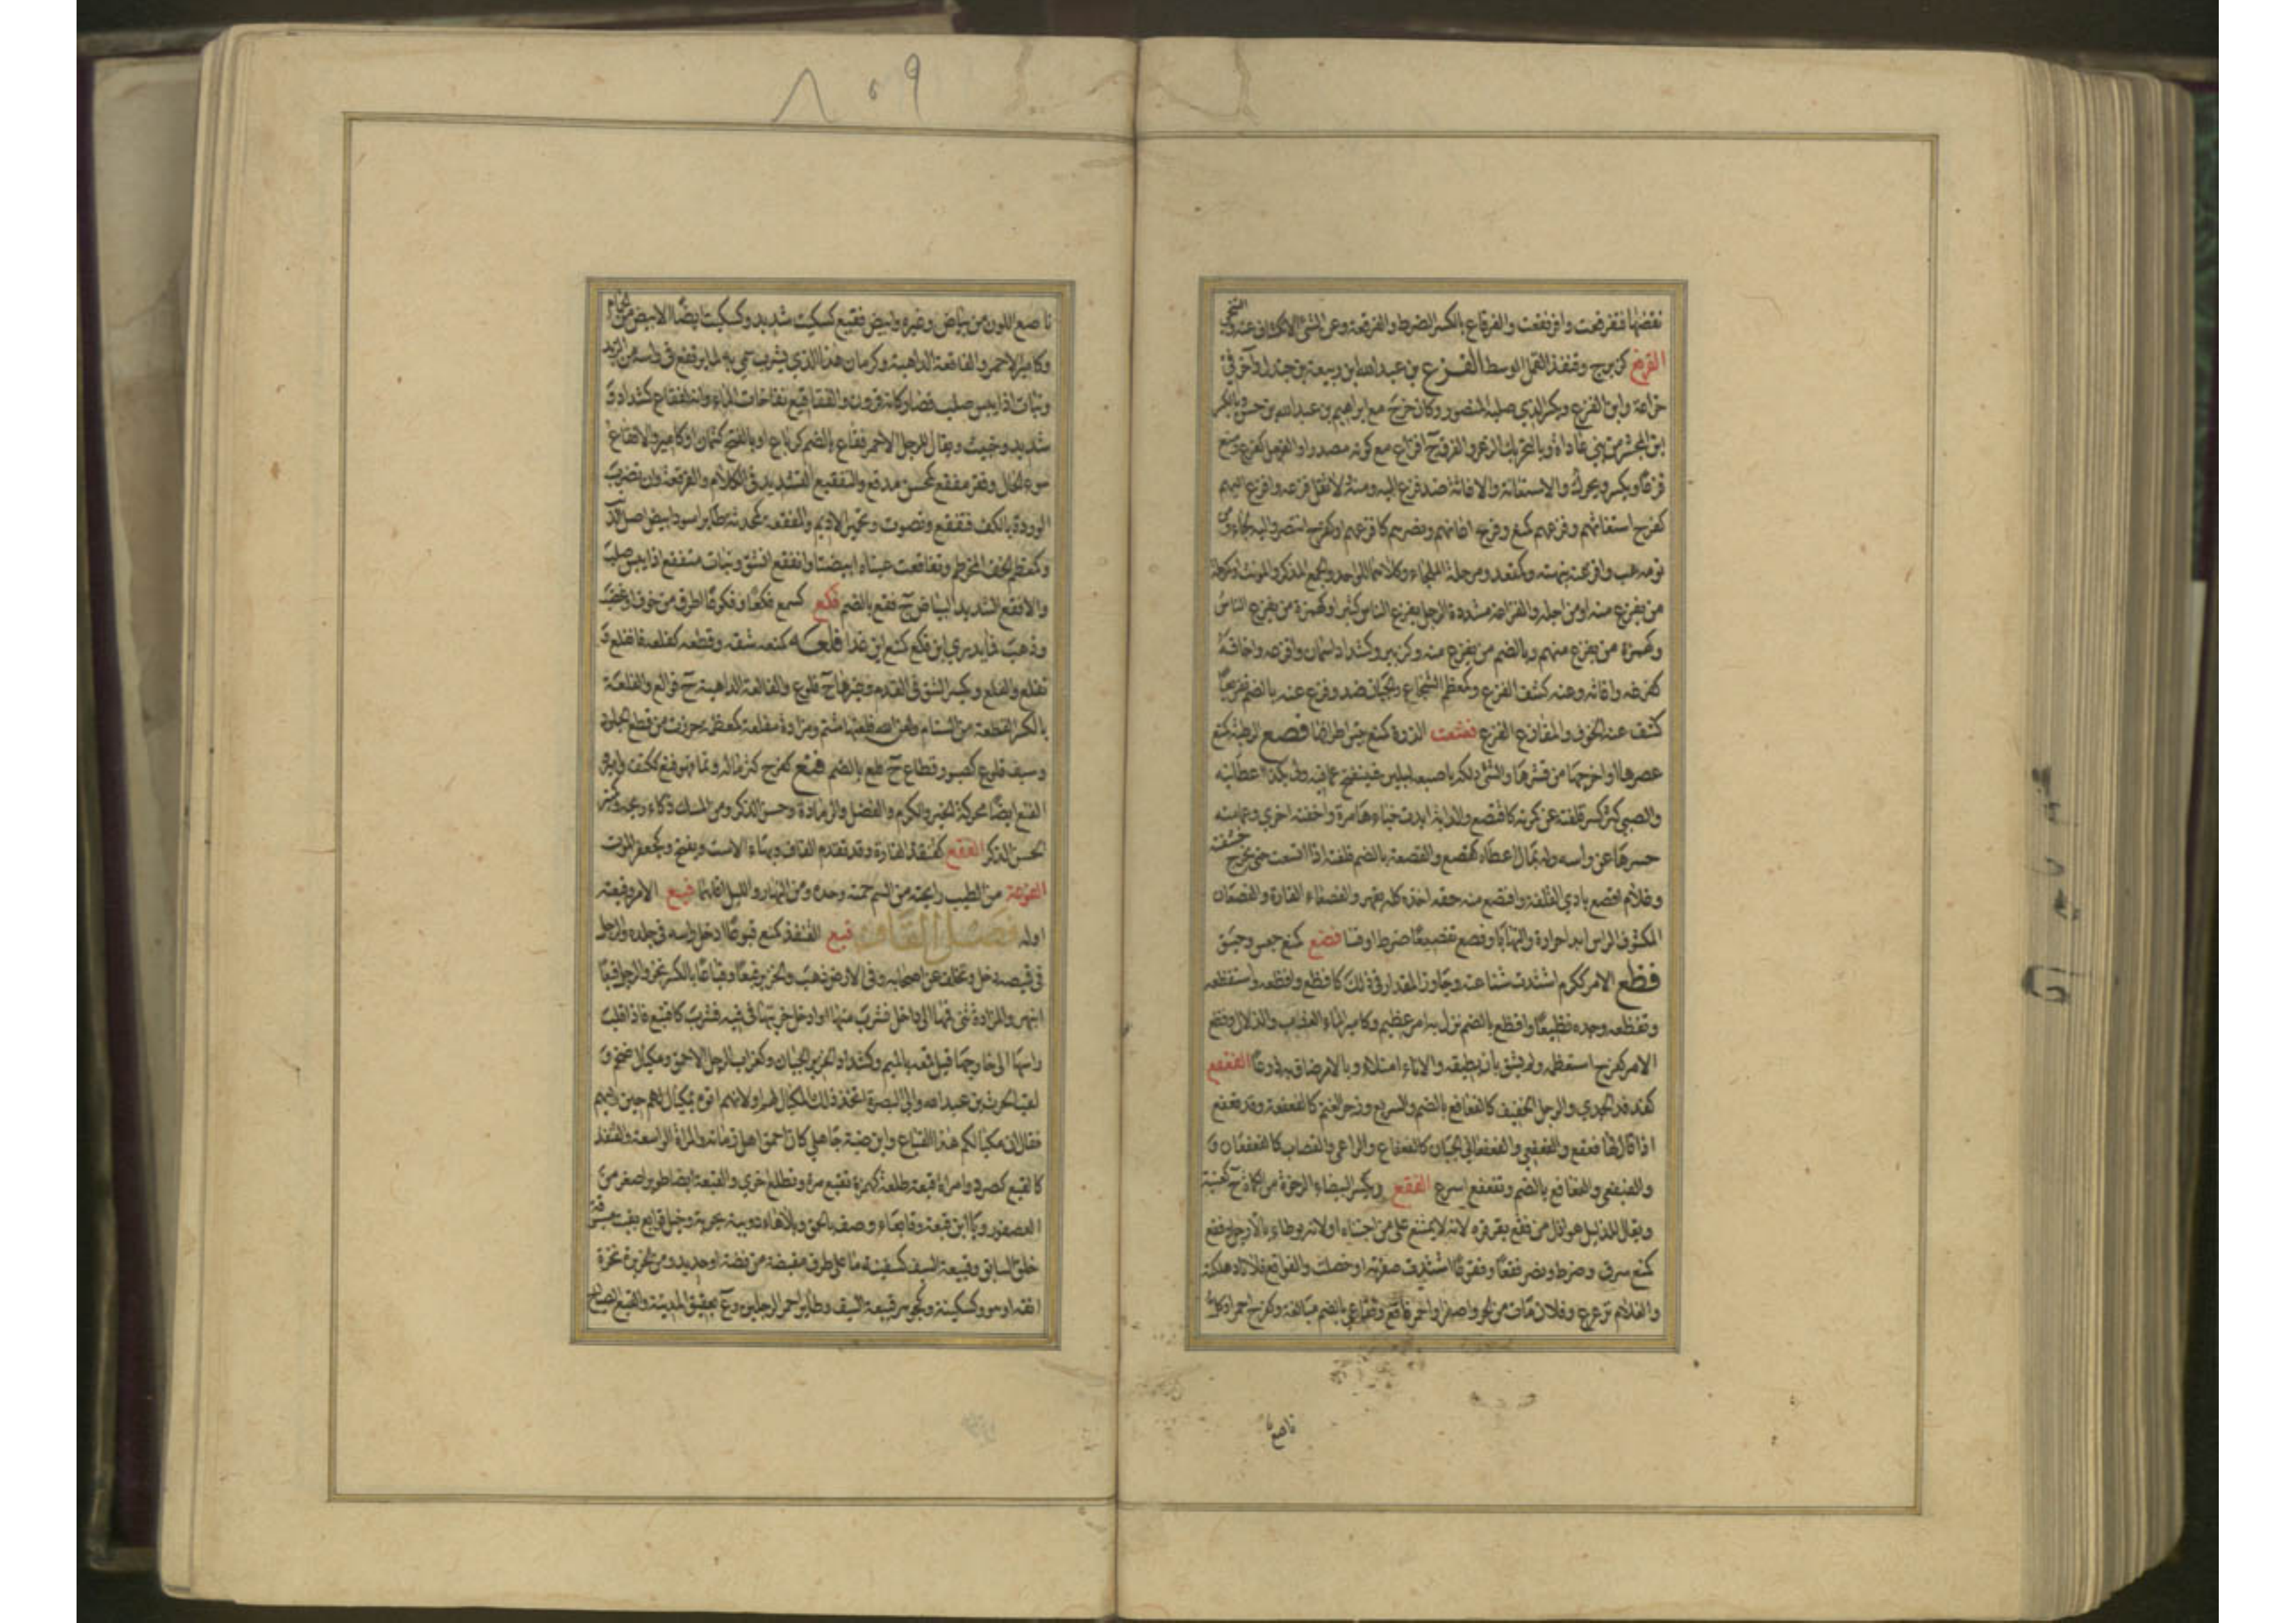 نفضها فتفرقعت وافرنقعت والفرقاع بالكسر الضرط والفرقعة وعن الشئ الانكشاف عنه والتنحي
القرثع كزبرج وقنفذ القمل الوسط الفزع بن عبدالله ابن ربيعة بن جندل وآخر في
خزاعة وابن الفزع ويكسر الذي صلبه المنصور وكان خرج مع ابراهيم بن عبدالله بن حسن وبالكسر
ابن المجشر من بني عاداة وبالتحريك الذعر والفرق ج افزاع مع كونه مصدرا والفعل كفرح ومنع
فزعا ويكسر ويحرك والاستغاثة والاغاثة ضد فزع اليه ومنه لا تقل فزعه وافزع اليهم
كفرح استغاثهم وفزعهم كمنع وفرح اغاثهم ونصرهم كافزعهم او كفرح انتصر واليه لجاء ومن
نومه هب وافزعته نبهته وكمقعد ومرحلة الملجاء وكلاهما للواحد والجمع المذكر والمونث او كمرحلة
من يفزع منه او من اجله والفزاعة مشددة الرجل يفزع الناس كثيرا وكهمزة من يفزع الناس
وكهمزة من يفزع منهم وبالضم من يفزع منه وكزبير وكشداد اسمان وافزعه واخافه
كفزعه واغاثه وعنه كشف الفزع وكمعظم الشجاع والجبان ضد وفزع عنه بالضم تفزيعا
كشف عنه الخوف والمفازع الفزع فشعت الذرة كمنع يبس اطرافها فصع الرطبة كمنع
عصرها او اخرجها من قشرها والشئ دلكه باصبعيه ليلين فينفتح عما فيه وله بكذا اعطانيه
والصبي كشر كسر قلفته عن كمرته كافتصع والدابة ابدت حياءها مرة واخفته اخرى وعمامته
حسرها عن راسه وله بمال اعطاه كفصع والفصعة بالضم قلفته اذا اتسعت حتى تخرج حشفته
وغلام افصع بادي القلفة وافتصع منه حقه اخذه كله بقهر والفصعاء الفارة والفصعان
المكشوف الراس ابدا حرارة والتهابا وفصع تفصيعا ضرط او فسا فضع كمنع جعس وحبق
فظع الامر ككرم اشتدت شناعته وجاوز المقدار في ذلك كافظع وافظعه واستفظعه
وتفظعه وجده فظيعا وافظع بالضم نزل به امر عظيم وكامير الماء العذب والزلال وفظع
الامر كفرح استعظمه ولم يثق بان يطيقه والاناء امتلاء وبالامر ضاق به ذرعا الفعفع
كفدفد الجدي والرجل الخفيف كالفعافع بالضم والسريع وزجر الغنم كالفعفعة وقد فعفع
اذا قال لها فعفع والفعفعي والفعفعاني الجبان كالفعفاع والراعي والقصاب كالفعفعان و
والفعفعي والفعافع بالضم وتفعفع اسرع الفقع ويكسر البيضاء الرخوة من الكماة ج كعنبة
ويقال للذليل هو اذل من فقع بقرقرة لانه لا يمتنع على من اجتناه او لانه يوطاء بالارجل وفقع
كمنع سرق وضرط ونضر فقعا وفقوعا اشتدت صفرته او خلصت والفواقع فلانا اهلكته
والغلام ترعرع وفلان مات من الحر واصفر او احمر فاقع وفقاعي بالضم مبالغة وكفرح احمر او كل
ناصع
٨٥٩
ناصع اللون من بياض وغيره وابيض فقيع كسكيت شديد وكسكيت ايضا الابيض من الحمام
وكامير الاحمر والفاقعة الداهية وكرمان هذا الذي يشرب سمي به لما يرتفع في راسه من الزبد
ونبات اذا يبس صلب فصار كانه قرون والفقاقيع نفاخات الماء وانه لفقاع كشداد
شديد وخبيث ويقال للرجل الاحمر فقاع بالضم كرباع او بالفتح كثمان او كامير والافقاع
سوء الحال وفقر مفقع كمحسن مدقع والتفقيع التشديد في الكلام والفرقعة وان تضرب
الوردة بالكف فتفقع وتصوت وتحمير الاديم والمفقعة كمحدثة طاير اسود ابيض اصل الذنب
وكمعظم الخف المخرطم وتفاقعت عيناه ابيضتا وانفقع انشق ونبات متفقع اذا يبس صلب
والافقع الشديد البياض ج فقع بالضم فكع كسمع فكعا وفكوعا اطرق من حزن او غضب
وذهب فما يدري اين فكع كمنع اين غدا فلعه كمنعه شقه وقطعه كفلعه فانفلع و
تفلع والفلع ويكسر الشق في القدم وغيرها ج فلوع والفالعة الداهية ج فوالع والفلعة
بالكسر القطعة من السنام ولعن الله فلعتها شتم ومزادة مفلعة كمعظمة خرزت من قطع الجلود
وسيف فلوع كصبور قطاع ج فلع بالضم فنع كفرح كثر ماله ونما فهو فنع ككتف وامير
الفنع ايضا محركة الخير والكرم والفضل والزيادة وحسن الذكر ومن المسك ذكاء ريحه وكثرة
الحسن الذكر الفنقع كقنفذ الفارة وقد تقدم القاف وبهاء الاست ويفتح وكجعفر الموت
الفوعة من الطيب رايحته من السم حمته وحده ومن النهار والليل اولهما فيع الامر وفيعته
اوله فصل القاف قبع القنفذ كمنع قبوعا ادخل راسه في جلده والرجل
في قميصه دخل وتخلف عن اصحابه وفي الارض ذهب والخنزير قبعا وقباعا بالكسر نخر والرجل قبعا
انبهر والمزادة ثنى فمها الى داخل فشرب منها او ادخل خربتها في فيه فشرب كاقتبع فاذا قلب
راسها الى خارجها قيل قمعه بالميم وكشداد الخنزير الجبان وكغراب الرجل الاحمق ومكيال ضخم و
لقب الحرث بن عبدالله والي البصرة اتخذ ذلك المكيال لهم او لانهم اتوه بمكيال لهم حين وليهم
فقال ان مكيالكم هذا لقباع وابن ضبة جاهلي كان احمق اهل زمانه والمراة الواسعة والقنفذ
كالقبع كصرد وامراة قبعة طلعة كهمزة تقبع مرة وتطلع اخرى والقبعة ايضا طوير اصغر من
العصفور ويا ابن قبعة وقابعاء وصف بالحمق وبلا هاء دويبة بحرية وخيل قوابع بقيت مسبوقة
خلف السابق وقبيعة السيف كسفينة ما على طرف مقبضه من فضة او حديد ومن الخنزير نخرة
انفه او هو كسكينة وكجوهر قبيعة السيف وطاير احمر الرجلين وع بعقيق المدينة والقبع الصياح